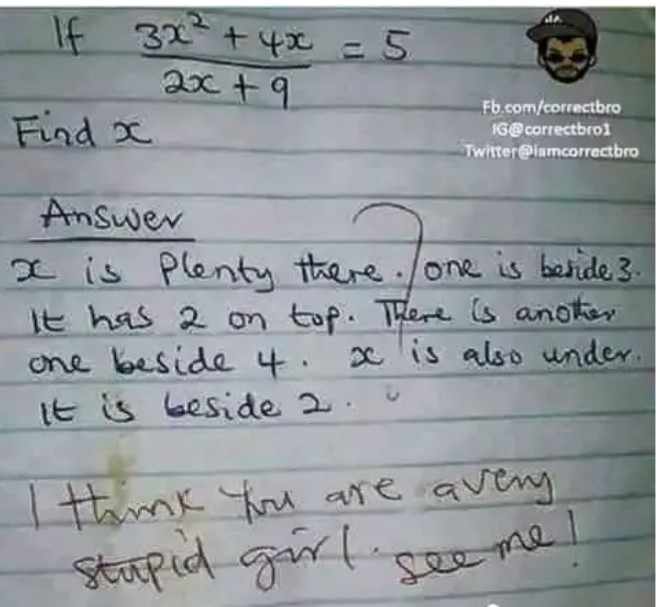 If 3x² + 4x = 5
2x + 9
Find x
Fb.com/correctbro
IG@correctbro1
Twitter@iamcorrectbro
Answer
x is Plenty there. one is beside 3.
It has 2 on top. There is another
one beside 4. x is also under.
It is beside 2.
?
I think you are a very
stupid girl. see me!